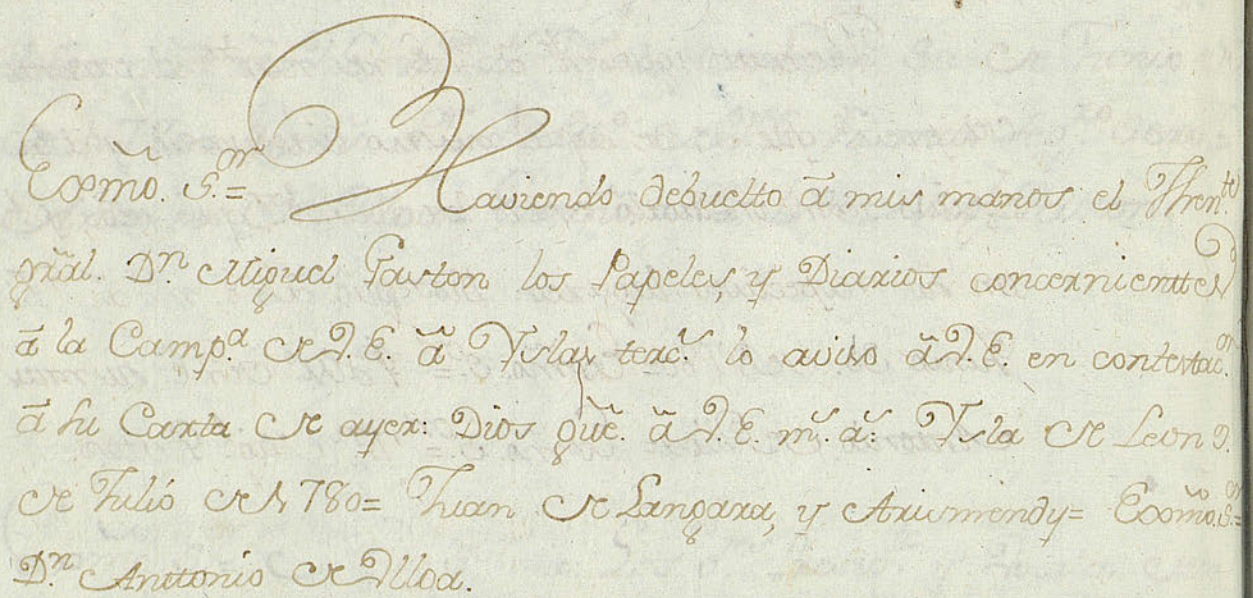 Exmõ. S.ᵒʳ= Haviendo debueltto â mis manos el Thenᵗᵉ.
grãl. Dⁿ Miguel Gaston los Papeles, y Diarios concernienttes
â la Camp.ᵃ de V.E. â Yslas tercˢ. lo aviso â V.E. en contestacᵒⁿ.
â su Carta de ayer: Dios guê. â V.E. mˢ. âˢ. Ysla de Leon 9.
de Julio de 1780= Juan de Langara, y Arismendy= Exmõ. S.ᵒʳ=
D.ⁿ Anttonio de Ulloa.